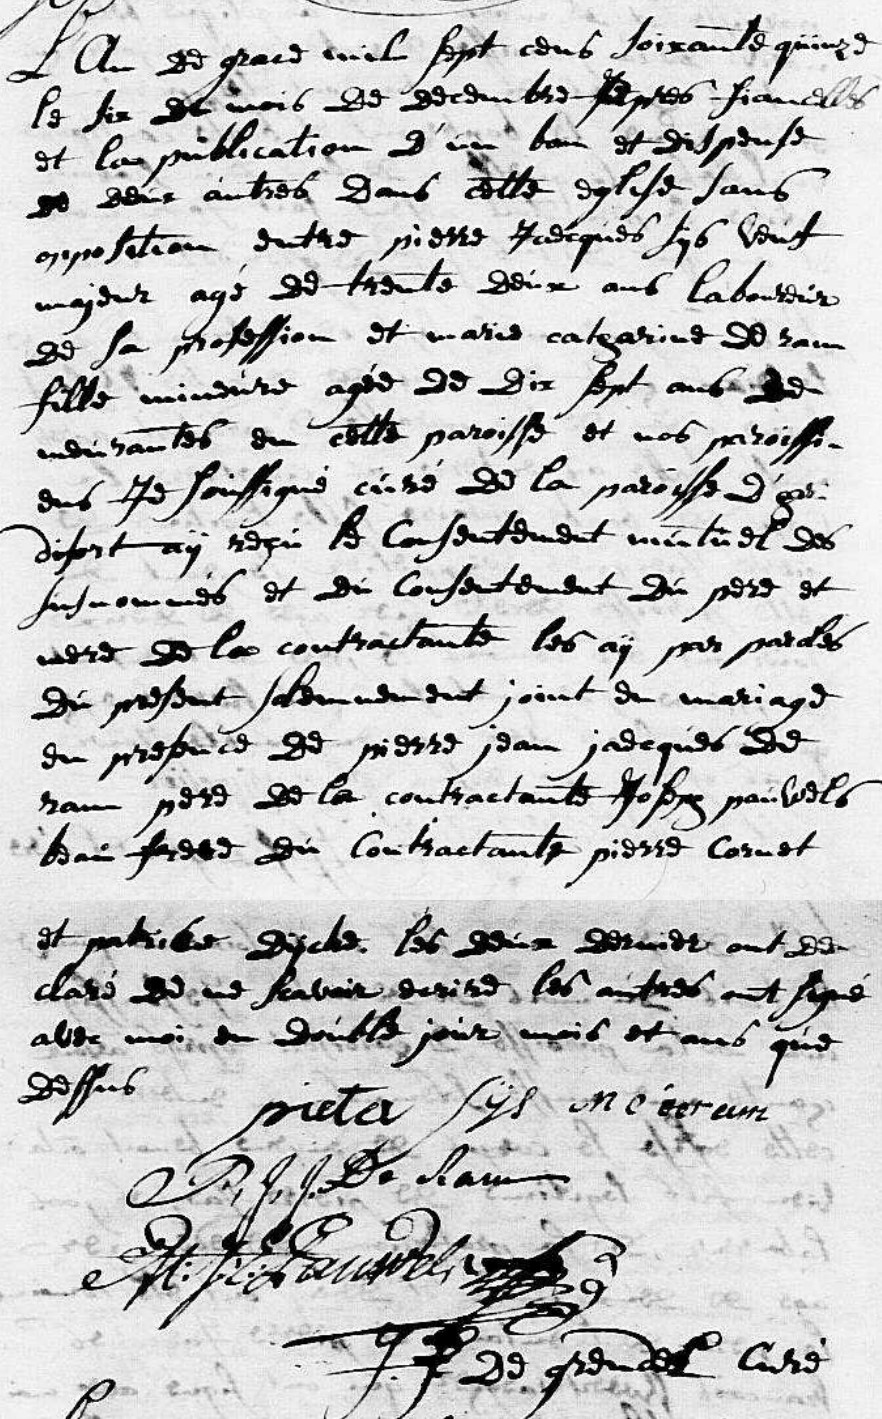 L'An de grace mil sept cens soixante quinze
le six de mois de decembre apres fiancelles
et la publication d'un ban et dispense
de deux autres dans cette eglise sans
opposition entre pierre Jacques sys veuf
majeur agé de trente deux ans laboureur
de sa profession et marie catharine de ram
fille mineure agée de dix sept ans de
meurantes en cette paroisse et nos paroissi-
ens Je soussigné curé de la paroisse
ay reçu le Consentement mutuel des
susnommés et du Consentement du pere et
mere de la contractante les ay par paroles
du present solemnement joint en mariage
en presence de pierre jean jacques de
ram pere de la contractante Joseph pauwels
beau frere du Contractante pierre Cornet
et patrice Dycke. les deux dernier ont de
claré de ne scavoir ecrire les autres ont signé
avec moi en double jour mois et ans que
dessus
pieter sys m c de ram
P. J. J. De Ram
J. Pauwels
J. F De grendel Curé